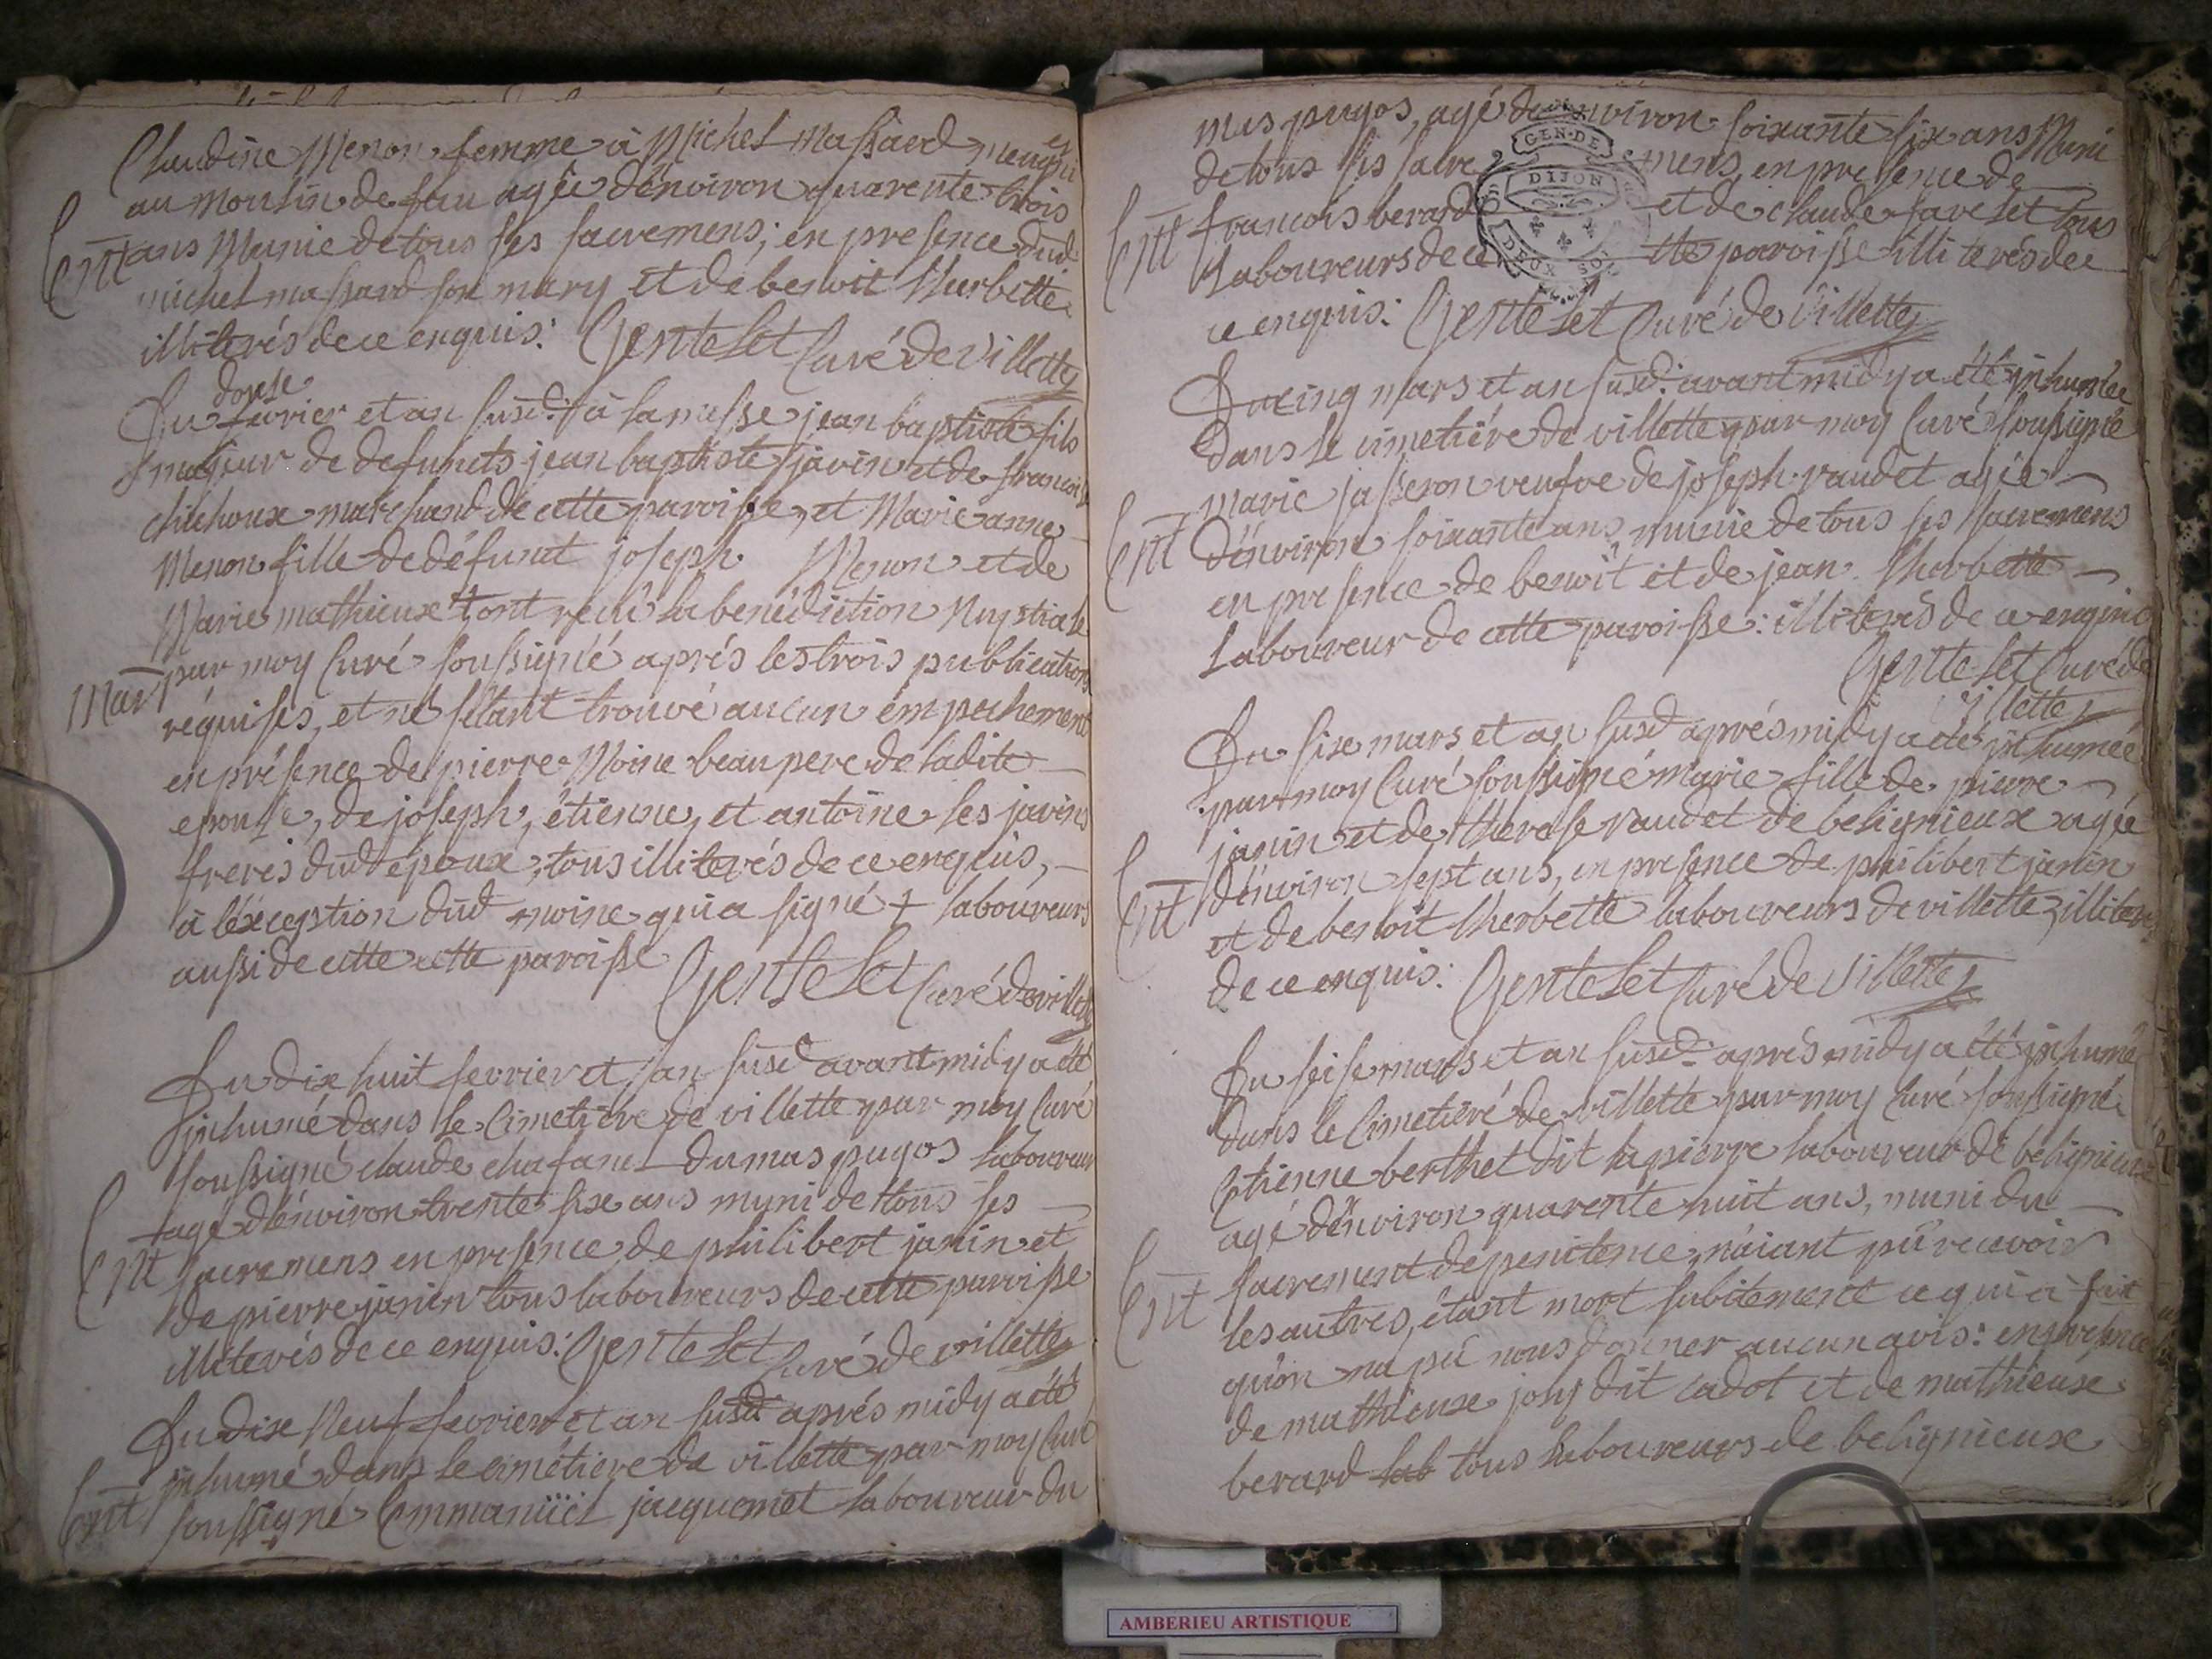 Claudine Menon femme à Michel Massard meugni er
au Moulin de fau agée d'énviron quarente trois
Ent ans Munie de tous ses sacremens; en presence dud
michel massard son mary et dé benoit Lherbette
illiterés de ce enquis: Gentelet Curé de Villette
douse
Du fevrier et an susd: à la messe jean baptiste fils
majeur de defunts jean baptiste javin et de francoise
chichoux marchand de cette paroisse, et Marie anne
Menon fille de défunt joseph Menon et de
Marie mathieux ont reçu la benédiction Nuptiale
Mar par moy Curé soussigné aprés les trois publications
réquises, et ne s'étant trouvé aucun émpechement
en présence de pierre Moine beau pere de ladite
epouse, de joseph, étienne, et antoine les javins
freres dud époux, tous illiterés de ce enquis,
à léxception dud moine qui a signé + laboureurs
aussi de cette cette paroisse
Gentelet Curé de villette
Du dix huit fevrier et an susd avant midy a été
inhumé dans le Cimetiere de villette par moy Curé
soussigné claude chafanel du mas pugos laboureur
agé d'énviron trente six ans muni de tous ses
Ent sacremens en presence de philibert janin et
de pierre janin tous laboureurs de cette paroisse
illiterés de ce enquis: Gentelet Curé de villette
Du dix Neuf fevrier et an susd: aprés midy a été
inhumé dans le cimétiere de villette par moy Curé
Ent soussigné Emmanüel jacquemet laboureur du
mas pugos, agé d'environ soixante six ans Muni
de tous ses sacre mens, en presence de
Ent francois berard et de claude favelet tous
laboureurs de ce tte paroisse illiterés de
ce enquis: Gentelet Curé de Villette
Du cinq mars et an susd: avant midy a été inhumée
dans le cimetiére de villette par moy Curé soussigné
marie jasseron veufve de joseph vaudet agée
Ent d'énviron soixante ans, munie de tous ses sacremens
en presence de benoit et de jean Lherbette
Laboureur de cette paroisse: illiterés de ce enquis
Gentelet Curé de
Villette
Du six mars et an susd aprés midy a été inhumée
par moy Curé soussigné marie fille de pierre
janin et de therese vaudet de bélignieux agée
Ent d'énviron sept ans, en presence de philibert janin
et de benoit Lherbette laboureurs de villette, illiterés
de ce enquis: Gentelet Curé de Villette
Du seise mars et an susd: aprés midy a été inhumé
dans le Cimetiéré de villette par moy Curé soussigné
Etienne berthet dit lapierre laboureur de bélignieux
agé d'énviron quarente huit ans, muni du
sacrement de penitence, n'aiant pû recevoir
Ent les autres, étant mort subitement ce qui à fait
qu'on na pû nous donner aucun avis: en presence
de mathieux joly dit cadot et de mathieux
berard lab tous laboureurs de belignieux
GEN.DE
DIJON
DEUX SOLS
AMBERIEU ARTISTIQUE